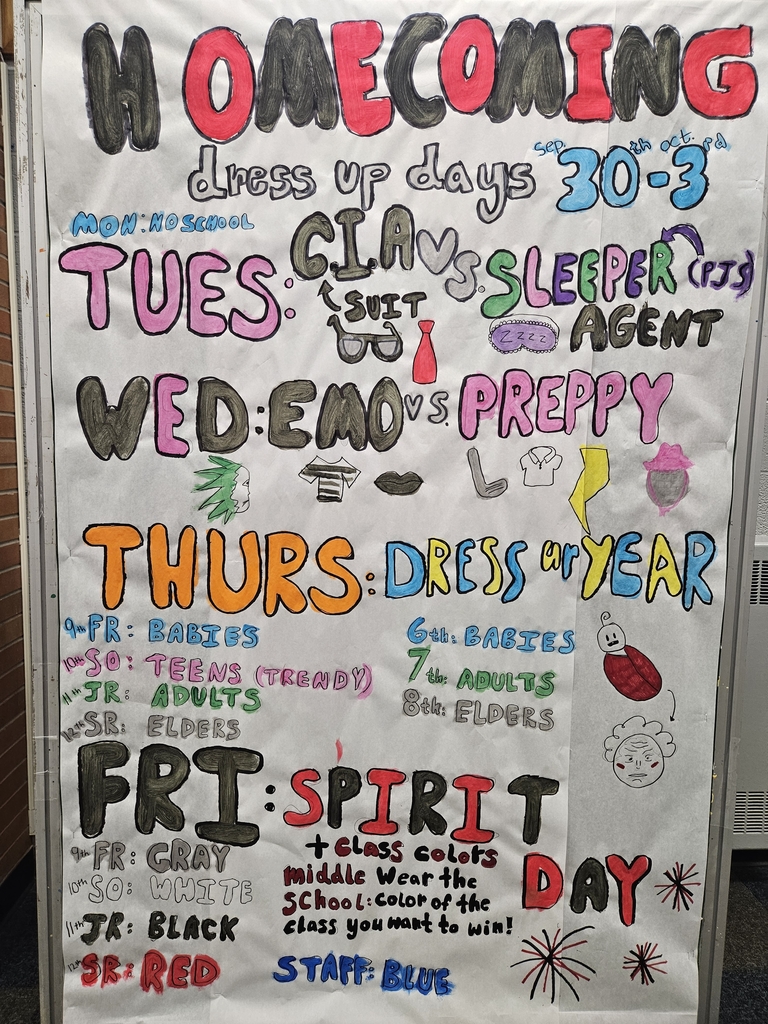 HOMECOMING
dress up days Sep. 30th - oct. 3rd
MON: NO SCHOOL
TUES: C.I.A VS. SLEEPER (PJS)
SUIT AGENT
ZZZZ
WED: EMO VS. PREPPY
THURS: DRESS ur YEAR
9th FR: BABIES 6th: BABIES
10th SO: TEENS (TRENDY) 7th: ADULTS
11th JR: ADULTS 8th: ELDERS
12th SR: ELDERS
FRI: SPIRIT DAY
+ Class colors
9th FR: GRAY
10th SO: WHITE
11th JR: BLACK
12th SR: RED
middle School: Wear the
color of the
class you want to win!
STAFF: BLUE